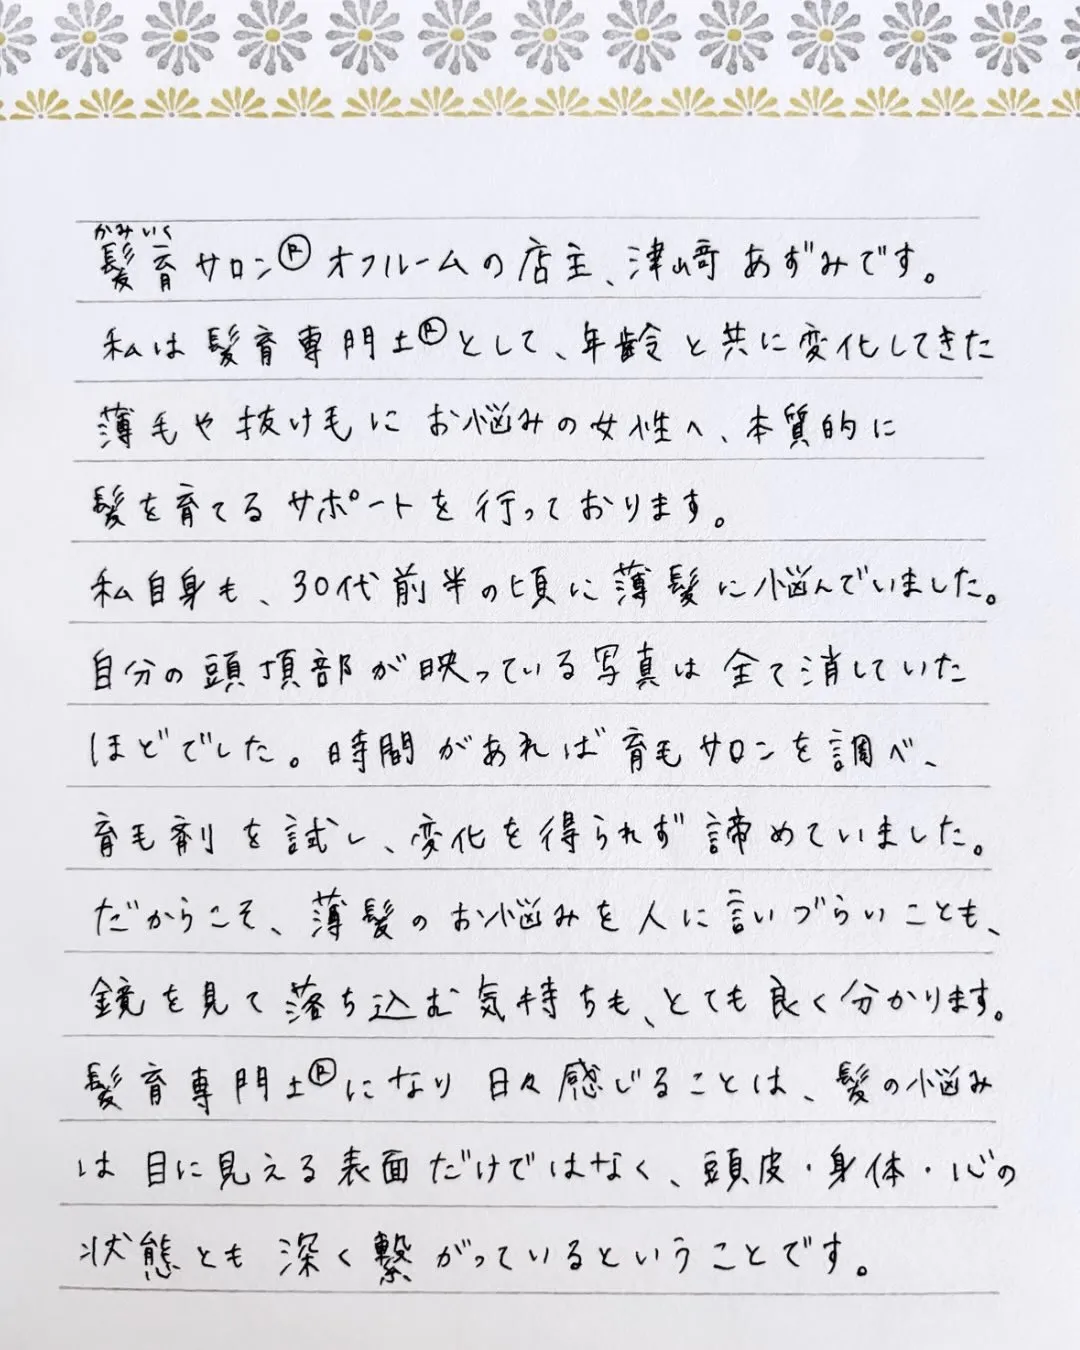 かみいく
髪育サロン®オフルームの店主、津﨑あずみです。
私は髪育専門士®として、年齢と共に変化してきた
薄毛や抜け毛にお悩みの女性へ、本質的に
髪を育てるサポートを行っております。
私自身も、30代前半の頃に薄髪に悩んでいました。
自分の頭頂部が映っている写真は全て消していた
ほどでした。時間があれば育毛サロンを調べ、
育毛剤を試し、変化を得られず諦めていました。
だからこそ、薄髪のお悩みを人に言いづらいことも、
鏡を見て落ち込む気持ちも、とても良く分かります。
髪育専門士®になり日々感じることは、髪の悩み
は目に見える表面だけではなく、頭皮・身体・心の
状態とも深く繋がっているということです。